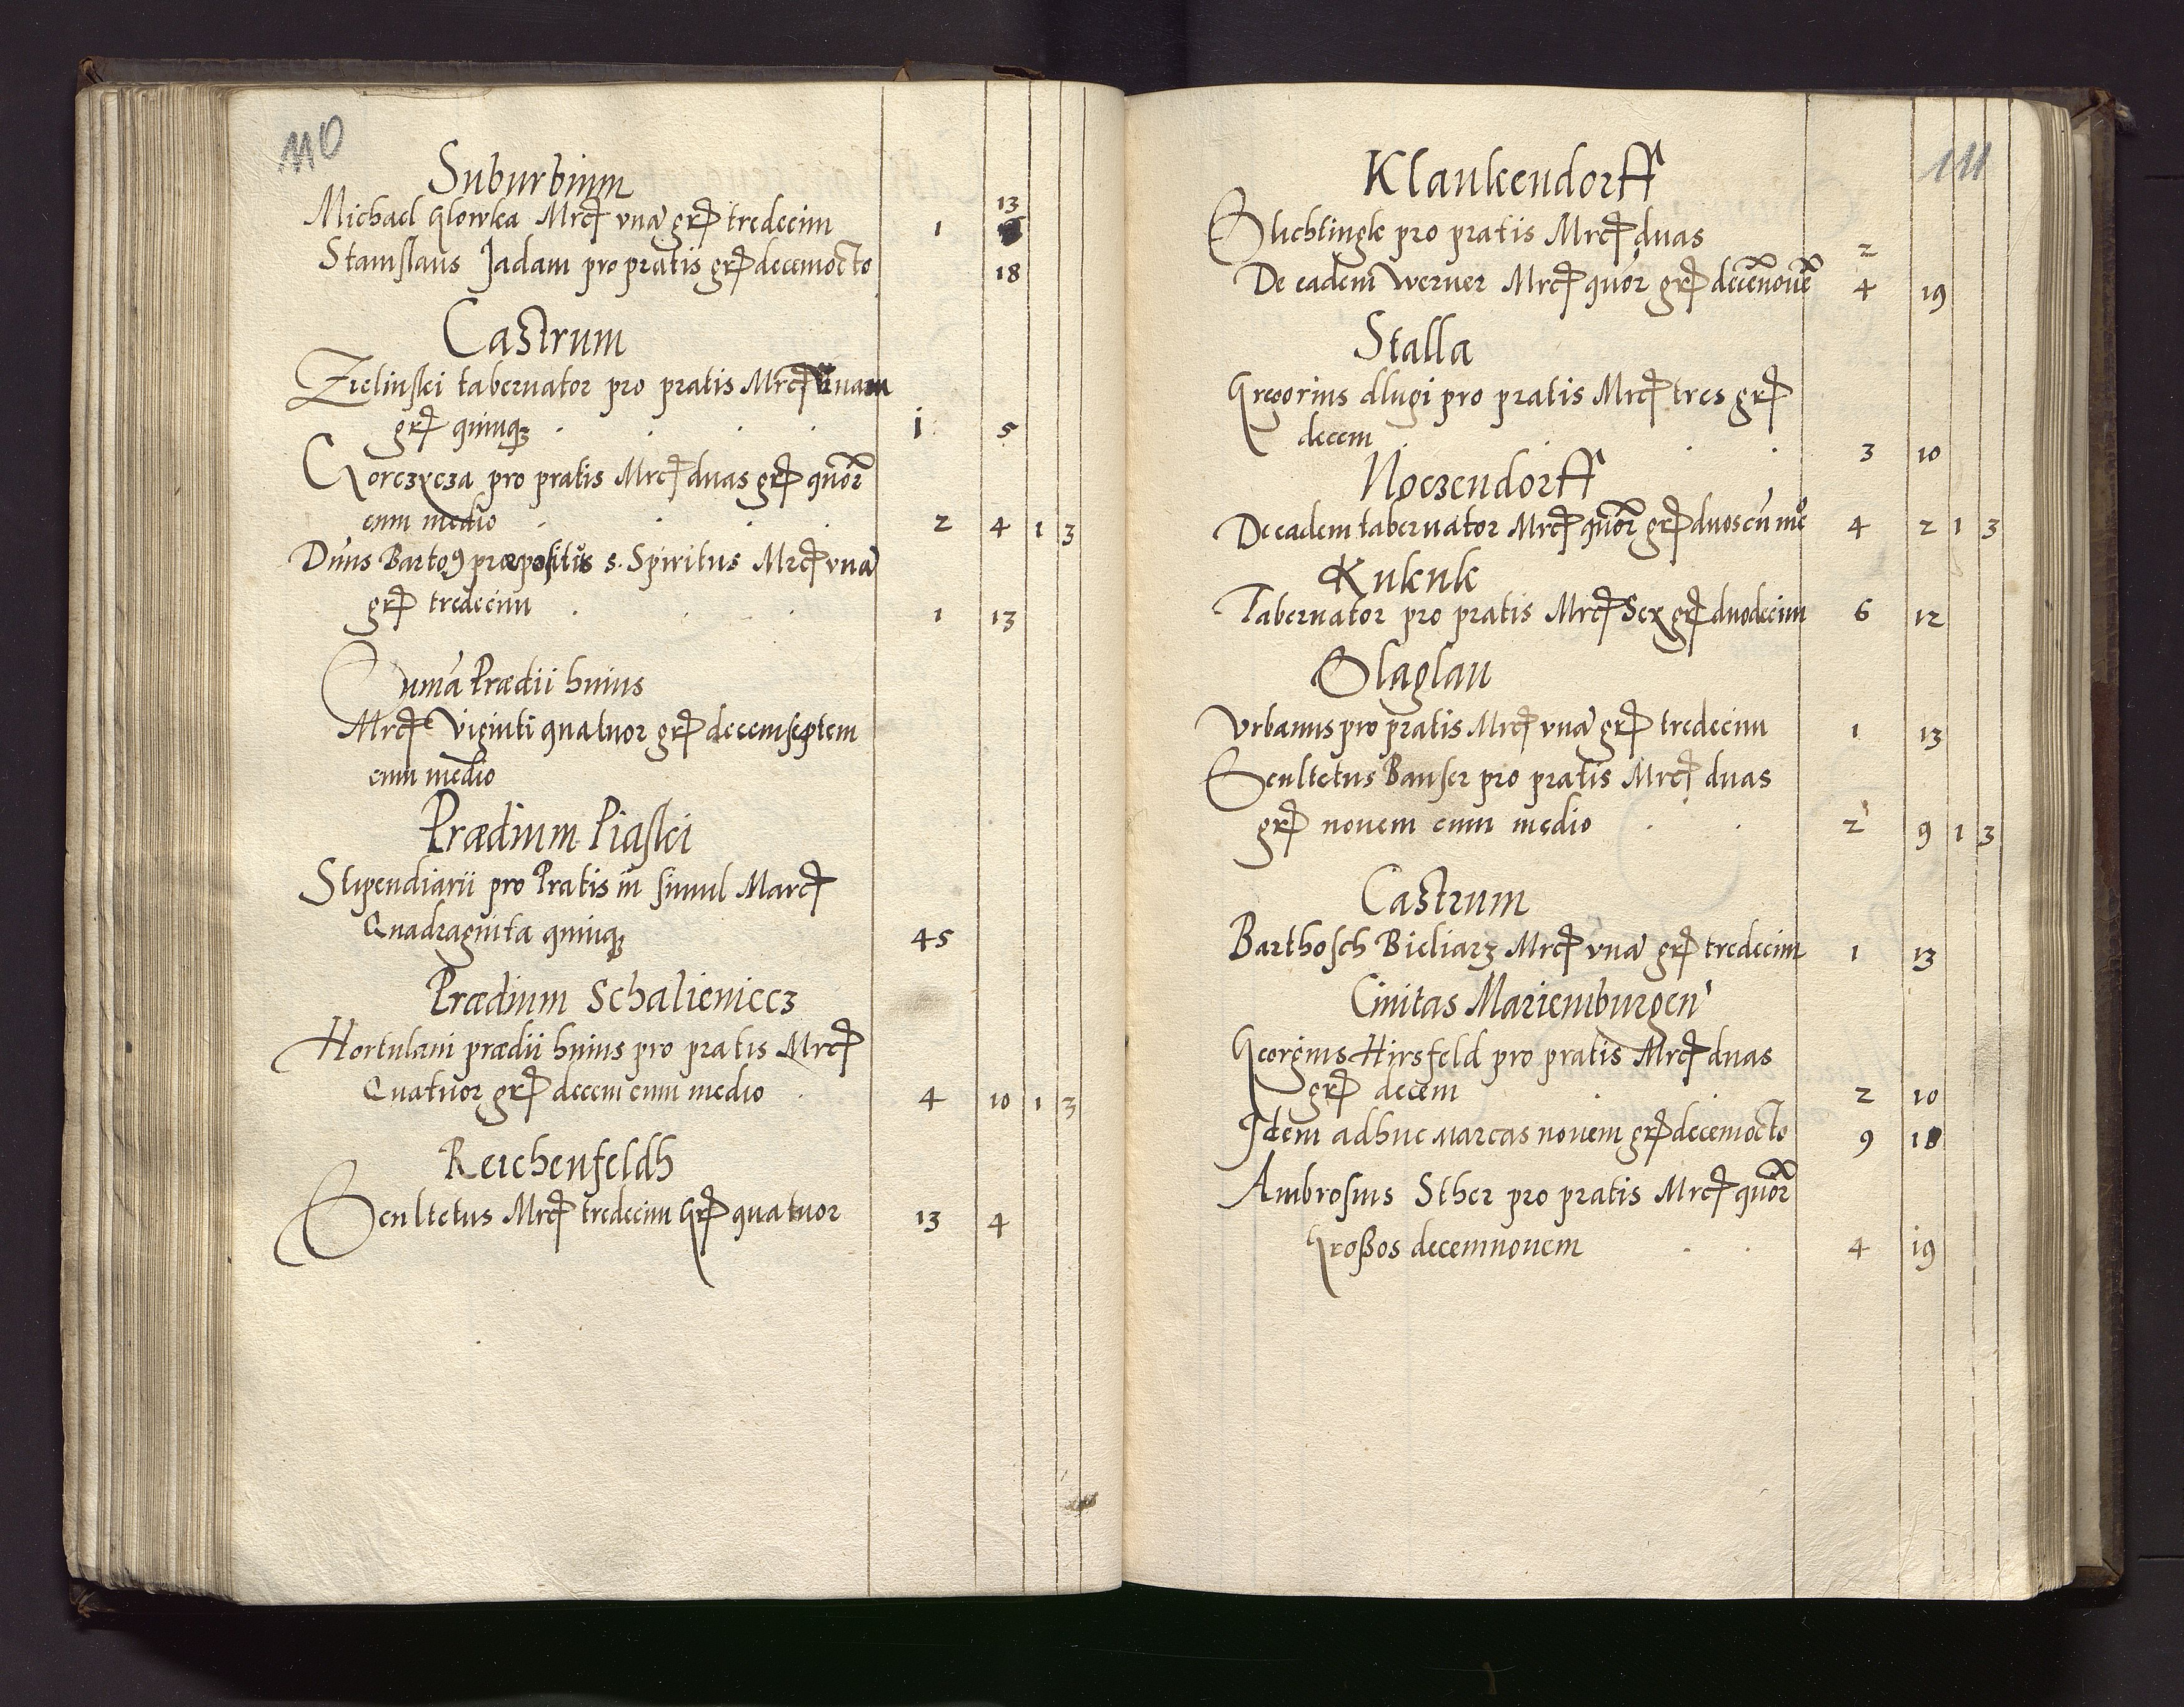 110
Suburbium
Michael Glowka Mrc unā gr tredecim 1 13
Stanislaus Jadam pro pratis gr decemocto 18
Castrum
Zielinski tabernator pro pratis Mrc unam
gr quinq; 1 5
Gorczycza pro pratis Mrc duas gr quor
cum medio 2 4 1 3
Dn̄us Bartos præpositus S. Spiritus Mrc vnā
gr tredecim 1 13
Sumā Prædii huius
Mrc Viginti quatuor gr decemseptem
cum medio
Prædium Piaski
Stipendiarii pro Pratis in simul Marc
Quadraginta quinq; 45
Prædium Schaliemiecz
Hortulani prædii huius pro pratis Mrc
Quatuor gr decem cum medio 4 10 1 3
Reichenfeldh
Scultetus Mrc tredecim Gr quatuor 13 4
111
Klaukendorff
Slichtingk pro pratis Mrc duas 2
De eadem Werner Mrc quor gr decēnouē 4 19
Stalla
Gregorius dlugi pro pratis Mrc tres gr
decem 3 10
Noczendorff
De eadem tabernator Mrc quor gr duos cū me 4 2 1 3
Kukuk
Tabernator pro pratis Mrc Sex gr duodecim 6 12
Slaglau
Vrbanus pro pratis Mrc vnā gr tredecim 1 13
Scultetus Banser pro pratis Mrc duas
gr novem cum medio 2 9 1 3
Castrum
Barthosch Bieliarz Mrc vnā gr tredecim 1 13
Ciuitas Mariemburgen
Georgius Hirsfeld pro pratis Mrc duas
gr decem 2 10
Idem adhuc Marcas nouem gr decemocto 9 18
Ambrosius Sther pro pratis Mrc quor
Großos decemnouem 4 19